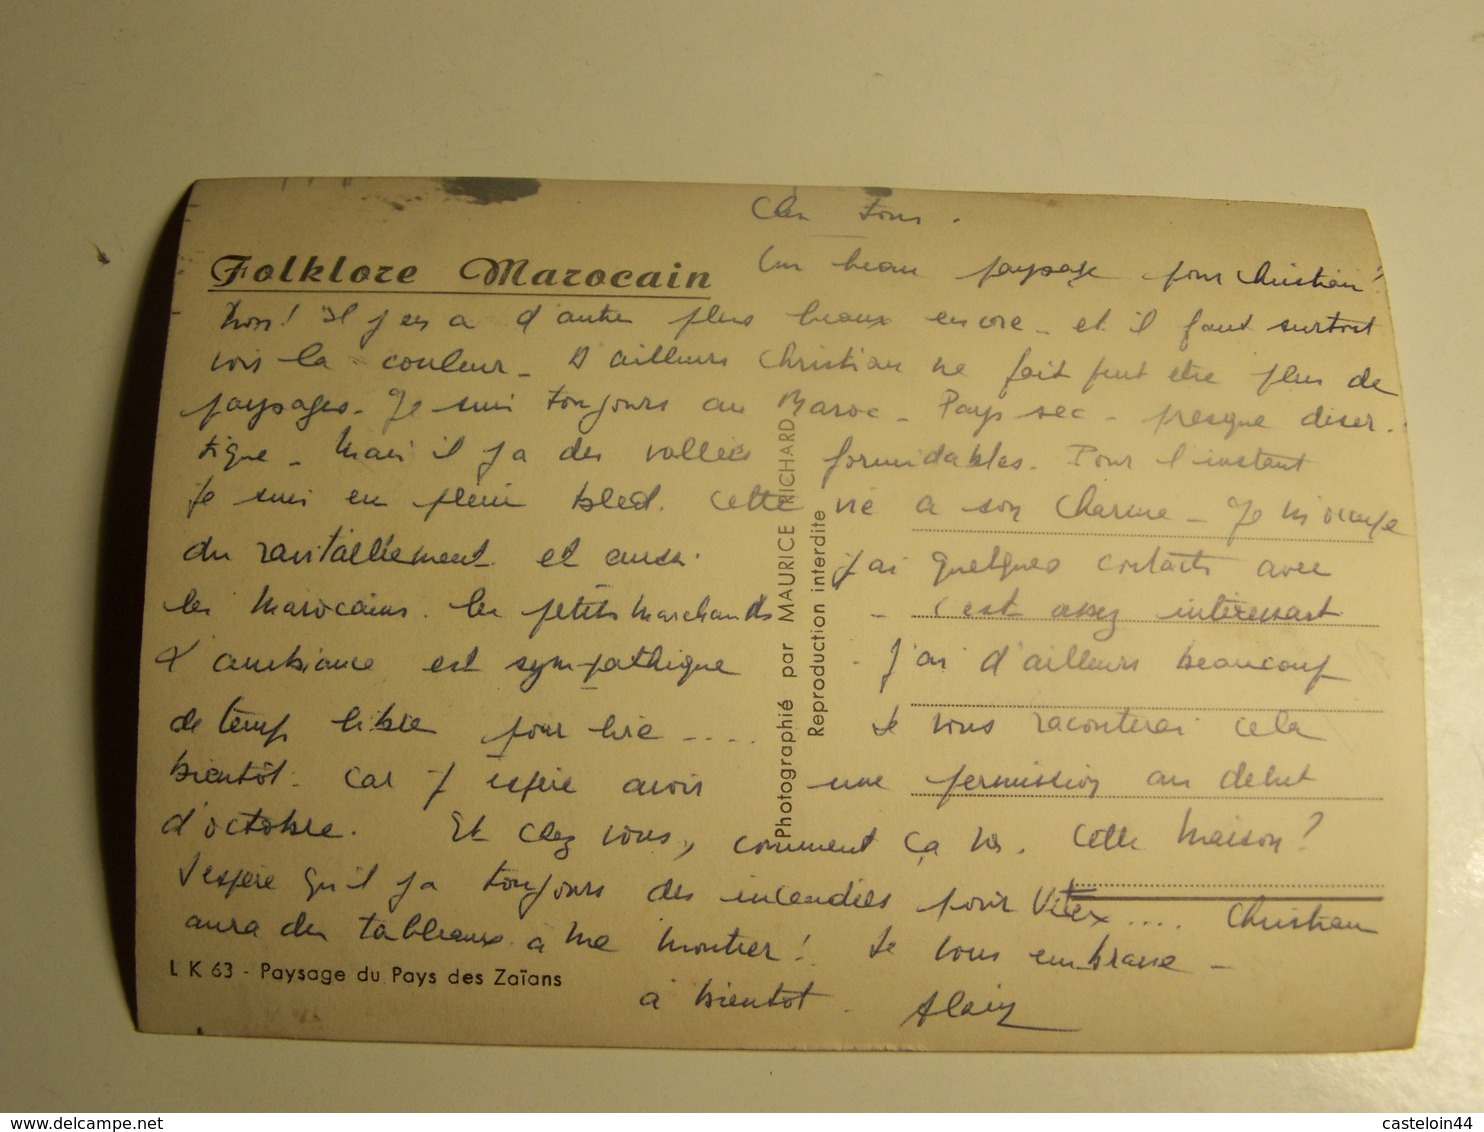 Chers Tous.
Folklore Marocain
Un beau paysage pour Christian!
Non! Il y en a d'autres plus beaux encore - et il faut surtout
voir la couleur - D'ailleurs Christian ne fait peut être plus de
paysages - Je suis toujours au Maroc - Pays sec - presque déser-
tique - Mais il y a des vallées formidables. Pour l'instant
Je suis en plein bled. Cette vie a son charme - Je m'occupe
du ravitaillement et aussi j'ai quelques contacts avec
les Marocains. les petits marchands - c'est assez intéressant
L'ambiance est sympathique - J'ai d'ailleurs beaucoup
de temps libre pour lire .... Je vous raconterai cela
bientôt. Car j'espère avoir une permission au début
d'octobre. Et chez vous, comment ça va. Cette maison?
J'espère qu'il y a toujours des incendies pour .... Christian
aura des tableaux à me montrer! Je vous embrasse -
à bientôt. Alain
L K 63 - Paysage du Pays des Zaïans
Photographié par MAURICE RICHARD
Reproduction interdite
delcampe.net
casteloin44